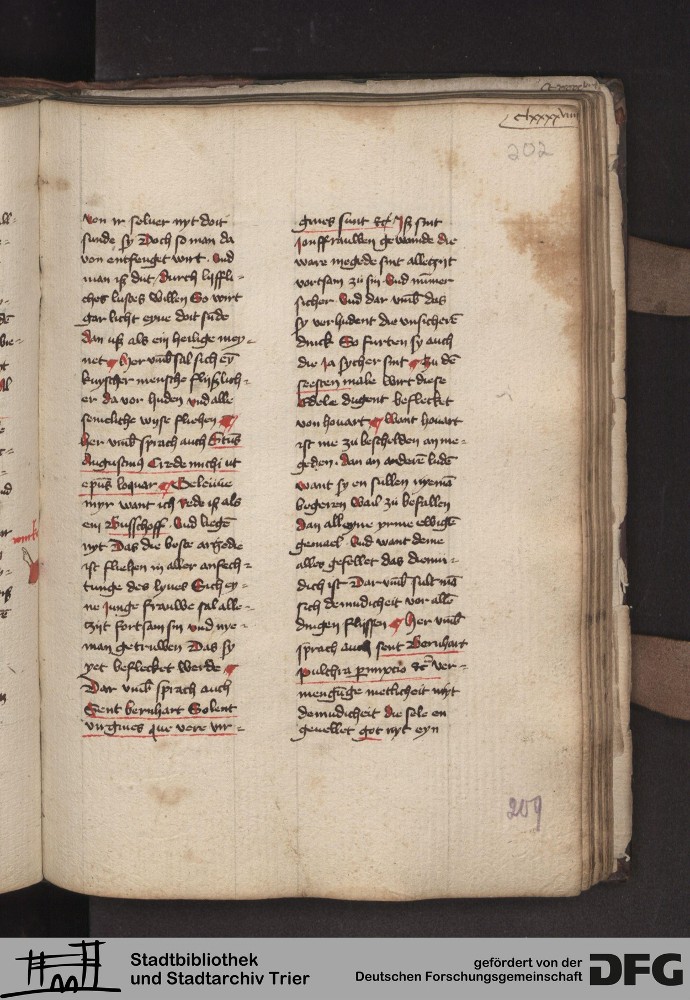 clxxxxviiii
202
von ir selver nyt doit
sunde sy Doch so man da
von entfenget wirt Vnd
man ist dut durch lyffli-
ches lustes willen So wirt
gar licht eyne doit sude
dan uß als ein heilige mey-
net her vmb sal sich ey
kuyscher mensche flyßlich-
er da vor huden vnd alle
semeliche wyse fliehen
her vmb sprach auch Sctus
Augustinus Crede michi ut
epus loquar Geleuve
myr want ich rede iß als
ein Busschoff Vnd liege
nyt Das die beste artzedie
ist fliehen in aller anfech-
tunge des lyves Eich ey-
ne junge frauwe sal alle-
zijt fortsam sin vnd nye-
man getruwen Das sy
yet beflecket werde
Dar vmb sprach auch
Sent bernhart Solent
virgines que vere vir-
gines sunt etc Iß sint
jonffrauwen gewande die
ware megede sint alletzijt
vortsam zu sin Vnd nummer
sicher Vnd dar vmb das
sy verhudent die vnsichere
dinck So furten sy auch
die ja sycher sint Zu de
seesten male wirt diese
edele dugent beflecket
von hovart Want hovart
ist me zu beschelden an me-
geden dan an anderen luden
want sy en sullen nyeman
begeren wail zu befallen
dan alleyne yrme ewigen
gemael Vnd want deme
alles gefellet das demu-
dich ist Dar vmb sult man
sich demudicheit vor allen
dingen flissen Her vmb
sprach auch sent Bernhart
pulchra permixcio etc ver-
mengunge metlicheit myt
demudicheit die sele en
gevellet got nyt eyn
209
Stadtbibliothek
und Stadtarchiv Trier
gefördert von der
Deutschen Forschungsgemeinschaft
DFG